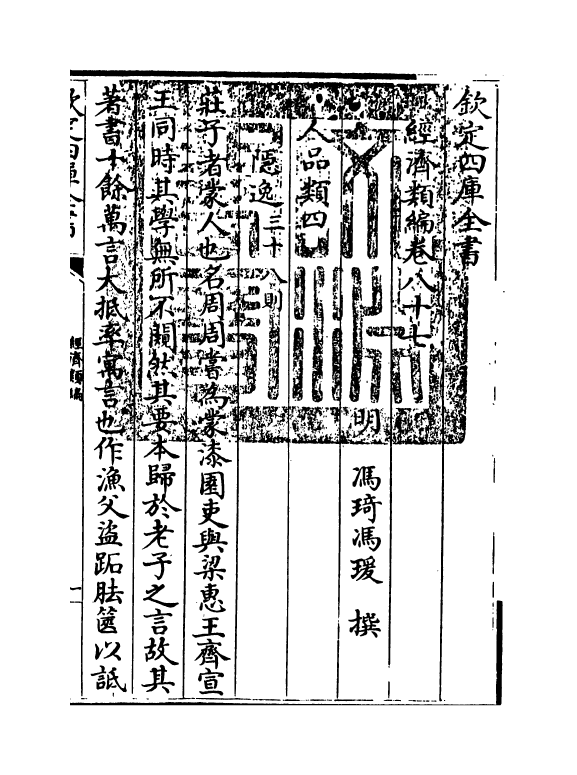 欽定四庫全書
經濟類編卷八十七
明 馮琦馮瑗 撰
人品類四
隱逸三十八則
莊子者蒙人也名周周嘗為蒙漆園吏與梁惠王齊宣
王同時其學無所不闚然其要本歸於老子之言故其
著書十餘萬言大抵率寓言也作漁父盜跖胠篋以詆
經濟類編
一